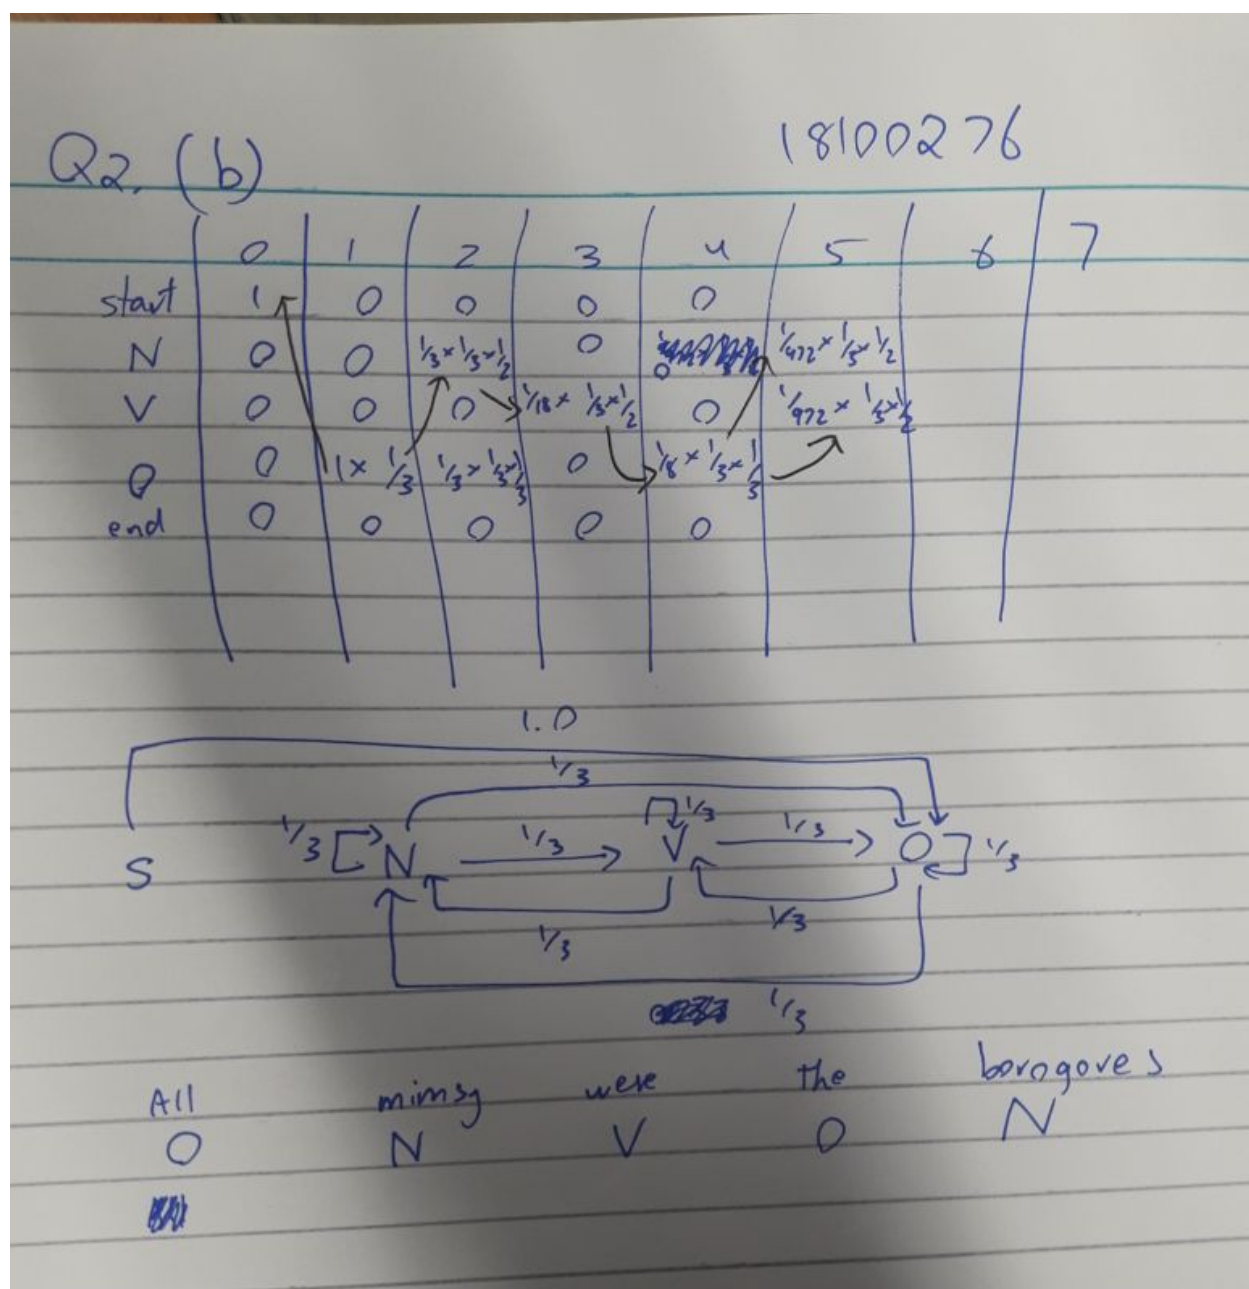 Q2. (b) 18100276
0 1 2 3 4 5 6 7
start 1 0 0 0 0
N 0 0 1/3 × 1/3 × 1/2 0 0 1/972 × 1/3 × 1/2
V 0 0 0 1/18 × 1/3 × 1/2 0 1/972 × 1/3 × 1/2
O 0 1 × 1/3 1/3 × 1/3 × 1/3 0 1/8 × 1/3 × 1/3
end 0 0 0 0 0
1.0
1/3
1/3 1/3 1/3 1/3 1/3
S N V O
1/3 1/3
1/3
All mimsy were the borogoves
O N V O N